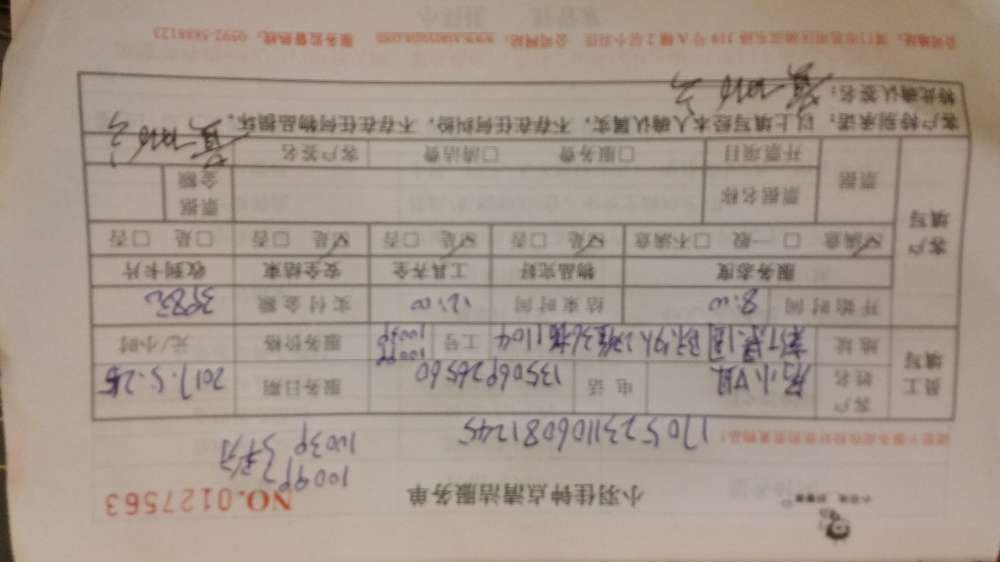 小羽佳钟点清洁服务单
NO.0127563
1009P 3书分
1003P
1705231106081245
请您于服务前收好您的贵重物品!
员工填写
客户姓名
小姐
电话 13506926560
服务日期 2017.5.25
地址
2期36梯1104
工号 10039
服务价格 元/小时
开始时间 8:00
结束时间 12:00
实付金额 398元
客户填写
服务态度 物品完好 工具齐全 安全结束 收到卡片
☑满意 □一般 □不满意 ☑是 □否 ☑是 □否 ☑是 □否 □是 □否
票据 票据名称 票据金额
开票项目 □服务费 □清洁费 客户签名
客户特别承诺:以上填写经本人确认属实,不存在任何纠纷,不存在任何物品损坏。
特此确认签名:
公司地址:厦门市思明区湖滨东路319号A幢2层小羽佳 公司网站:www.xiaoyujia.com 服务监督热线:0592-5888123